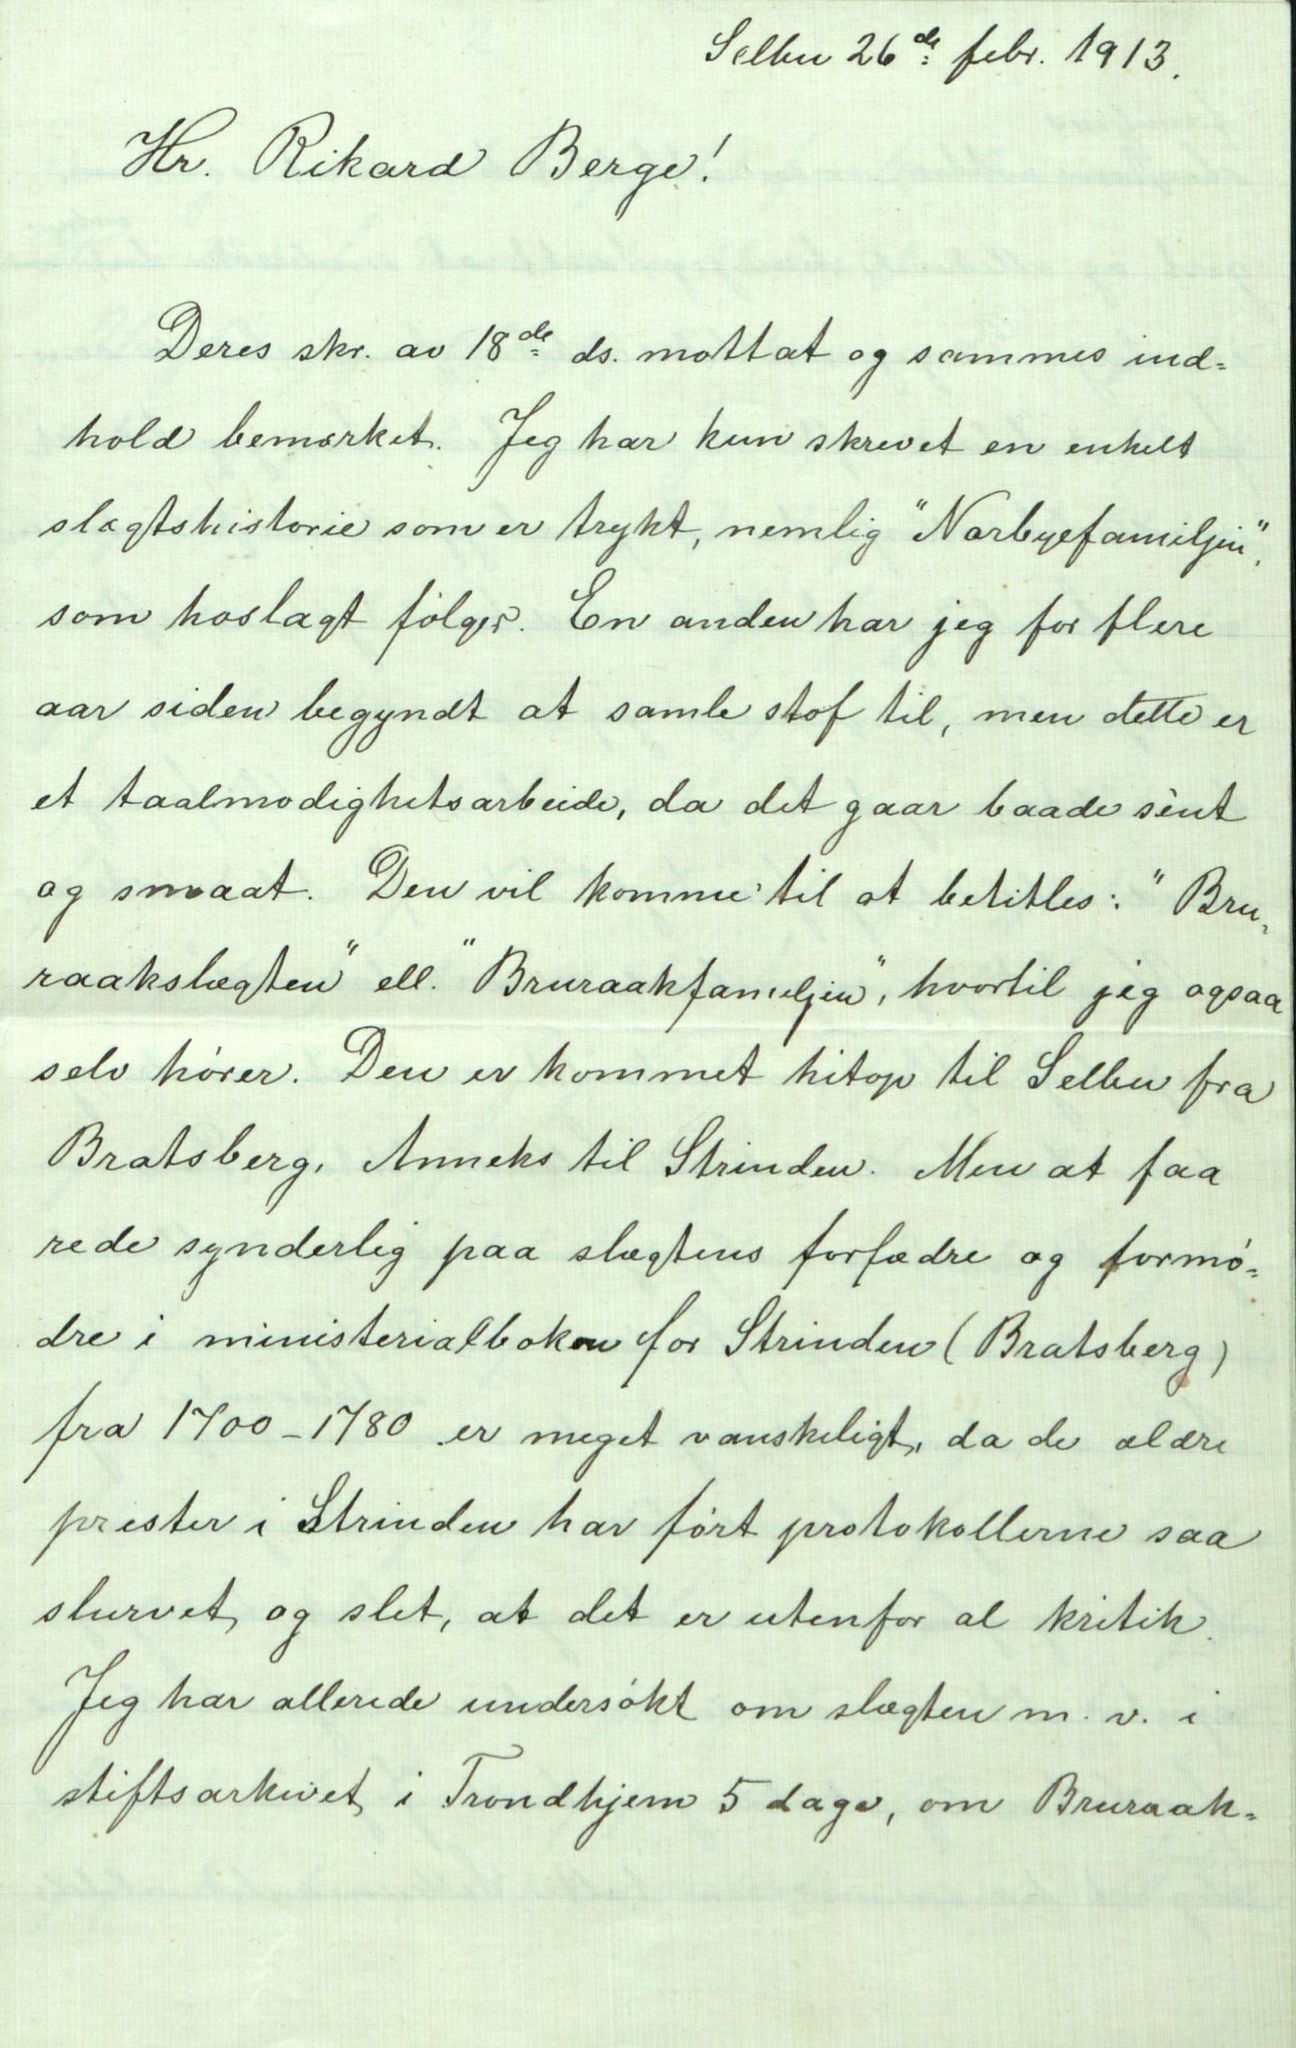 Selbu 26de febr. 1913.
Hr. Rikard Berge!
Deres skr. av 18de ds. mottat og sammes ind=
hold bemærket. Jeg har kun skrevet en enkelt
slægtshistorie som er trykt, nemlig "Narbyefamiljen",
som hoslagt følger. En anden har jeg for flere
aar siden begyndt at samle stof til, men dette er
et taalmodighetsarbeide, da det gaar baade sènt
og smaat. Den vil komme til at betitles: "Bru-
raakslægten" ell. "Bruraakfamiljen", hvortil jeg ogsaa
selv hører. Den er kommet hitop til Selbu fra
Bratsberg, Anneks til Strinden. Men at faa
rede synderlig paa slægtens forfædre og formø-
dre i ministerialboken for Strinden (Bratsberg)
fra 1700-1780 er meget vanskeligt, da de ældre
prester i Strinden har ført protokollerne saa
slurvet og slet, at det er utenfor al kritik.
Jeg har allerede undersøkt om slægten m. v. i
stiftsarkivet i Trondhjem 5 dage, om Bruraak=